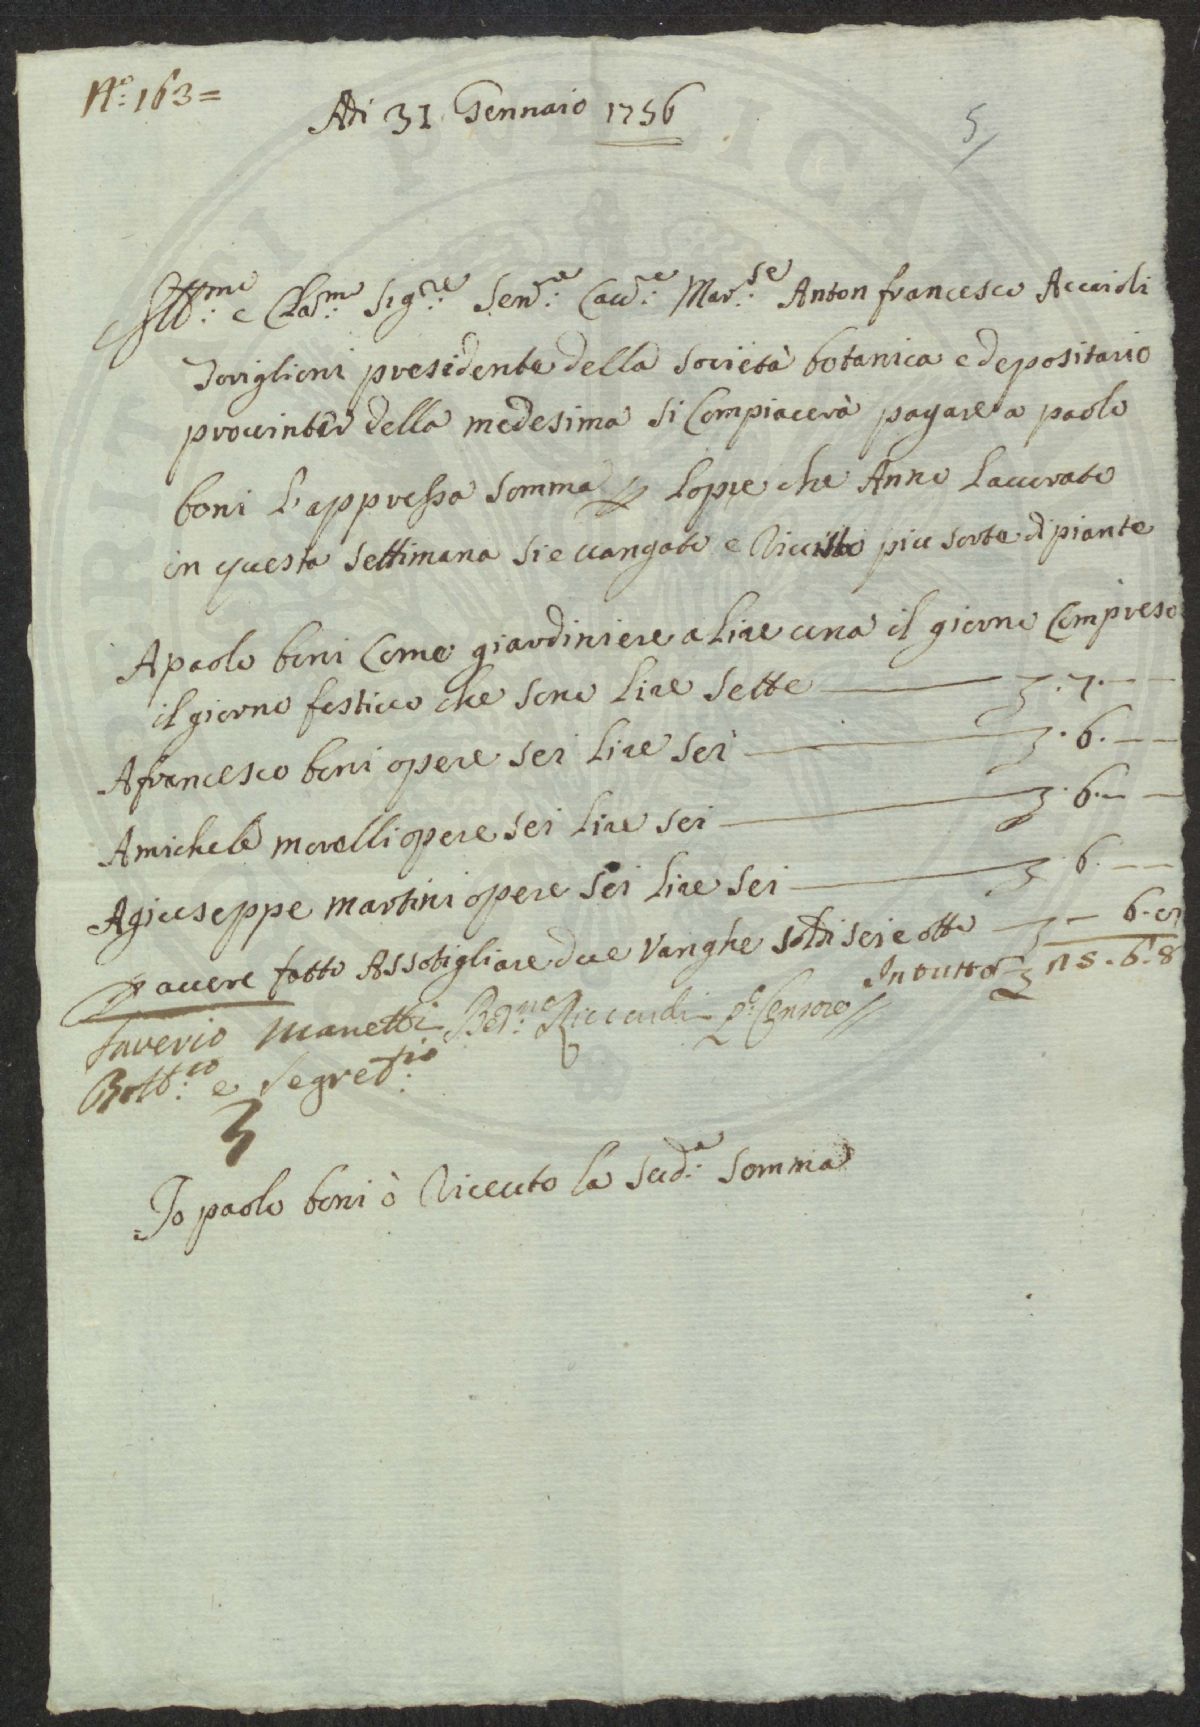 N.o 163=
Adi 31 Gennaio 1756
5
Ill.mo e Clar.mo Sig.re Sen.e Cav.e Mar.se Anton francesco Acciaioli
Toriglioni presidente della Società botanica e depositario
della medesima si Compiacerà pagare a paolo
boni l'appressa somma lopre che Anno lavorato
in questa settimana si e vangato e più sorte di piante
A paolo boni Come giardiniere a lire una il giorno Compreso
il giorno festivo che sono lire sette 7.—
A francesco boni opere sei lire sei 6.—
A michele morelli opere sei lire sei 6.—
A giuseppe martini opere sei lire sei 6.—
P avere fatto Assotigliare due vanghe soldi sei e otto — 6.8
In tutto 25.6.8
Saverio Manetti Bern.no Riccardi P.o Censore
Bott.co e Segret.rio
Io paolo boni ò Riceuto la sud.a somma